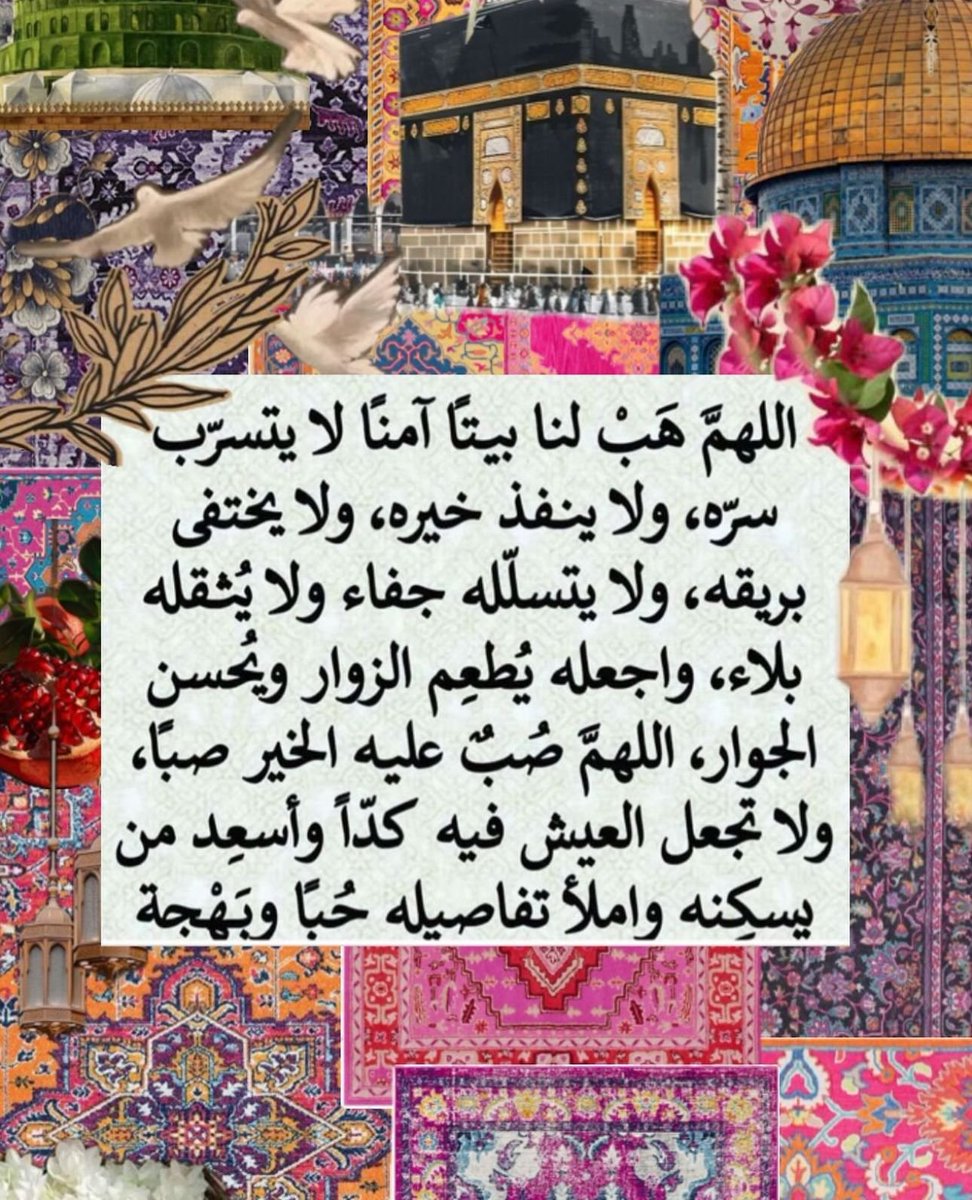 اللهمَّ هَبْ لنا بيتًا آمنًا لا يتسرّب
سرّه، ولا ينفذ خيره، ولا يختفى
بريقه، ولا يتسلّله جفاء ولا يُثقله
بلاء، واجعله يُطعِم الزوار ويُحسن
الجوار، اللهمَّ صُبٌ عليه الخير صبًا،
ولا تجعل العيش فيه كدّاً وأسعِد من
يسكِنه واملأ تفاصيله حُبًا وبَهْجة